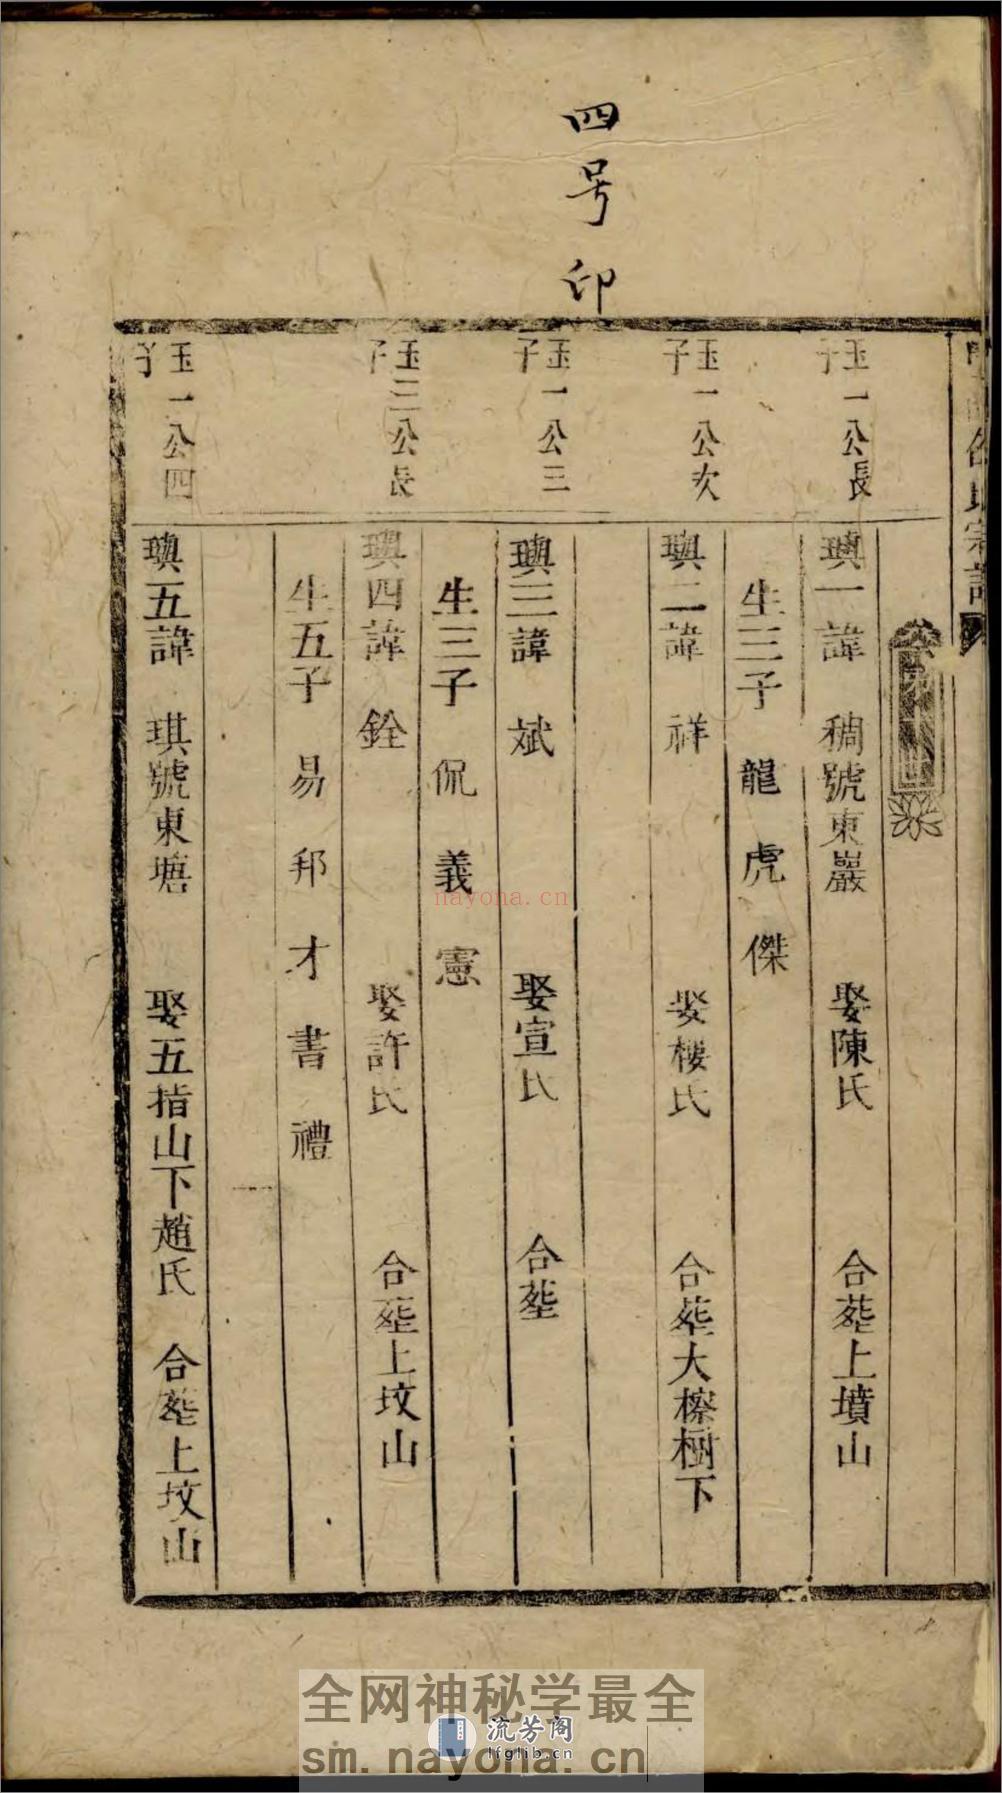 四号印
玉一公長子
璵一諱 稠號東巖 娶陳氏 合塟上墳山
生三子 龍 虎 傑
玉一公次子
璵二諱 祥 娶楼氏 合塟大檫樹下
玉一公三子
璵三諱 斌 娶宣氏 合塟
生三子 侃 義 憲
玉三公長子
璵四諱 銓 娶許氏 合塟上坟山
生五子 易 邦 才 書 禮
玉一公四子
璵五諱 琪號東塘 娶五指山下趙氏 合塟上坟山
nayona.cn
全网神秘学最全
流芳阁
lfglib.cn
sm.nayona.cn